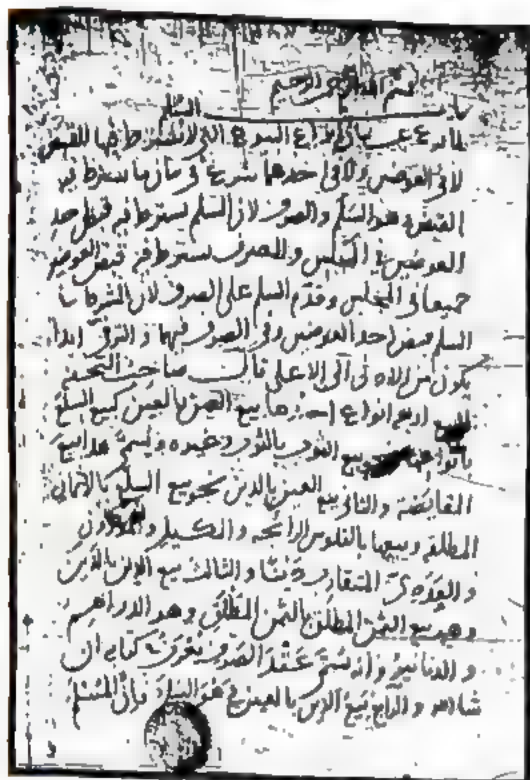 بسم الله الرحمن الرحيم
باب السلم
لما فرغ من بيان انواع البيوع التي لا يشترط فيها القبض
لا في العوضين ولا في احدهما شرع في بيان ما يشترط فيه
القبض وهو السلم والصرف لان السلم يشترط فيه قبض احد
العوضين في المجلس والصرف يشترط فيه قبض العوضين
جميعا في المجلس وقدم السلم على الصرف لان الشرط في
السلم قبض احد العوضين وفي الصرف قبضهما والترقي ابدا
يكون من الادنى الى الاعلى قال صاحب التحفة
البيع اربع انواع احدها بيع العين بالعين كبيع السلع
بانواعها نحو بيع الثوب بالثوب وغيره ويسمى هذا بيع
المقايضة والثاني بيع العين بالدين نحو بيع السلع بالاثمان
المطلقة وبيعها بالفلوس الرائجة والمكيل والموزون
والعددي المتقارب دينا والثالث بيع الدين بالدين
وهو بيع الثمن المطلق بالثمن المطلق وهو الدراهم
والدنانير وانه يسمى عقد الصرف يعرف في كتابه ان
شاء الله والرابع بيع الدين بالعين وهو السلم فان المسلم